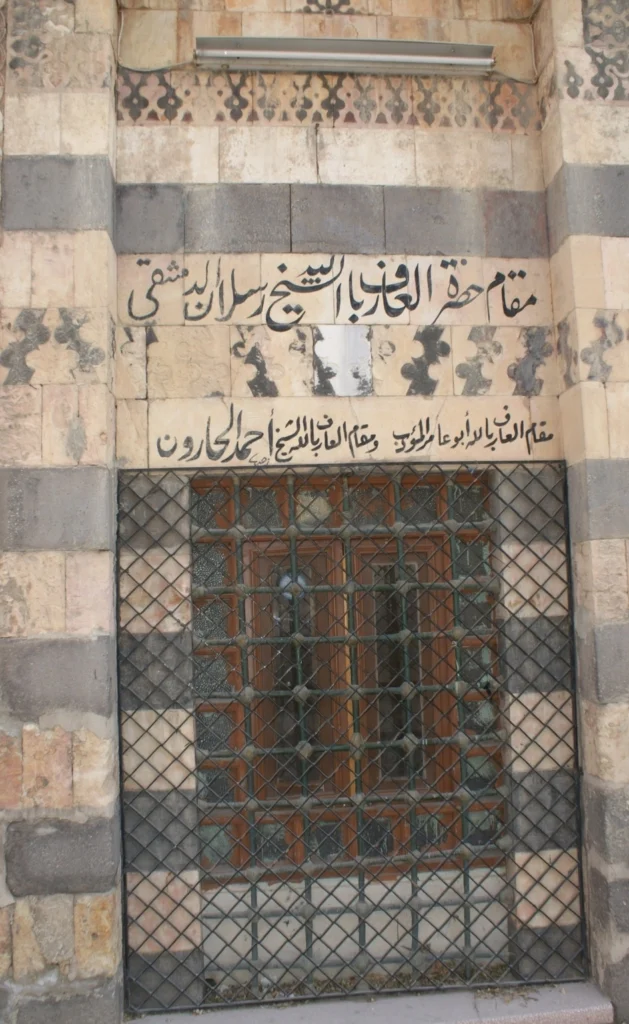 مقام حضرة العارف بالله الشيخ رسلان الدمشقي
مقام العارف بالله أبو عامر المؤدب ومقام العارف بالله الشيخ أحمد الحارون